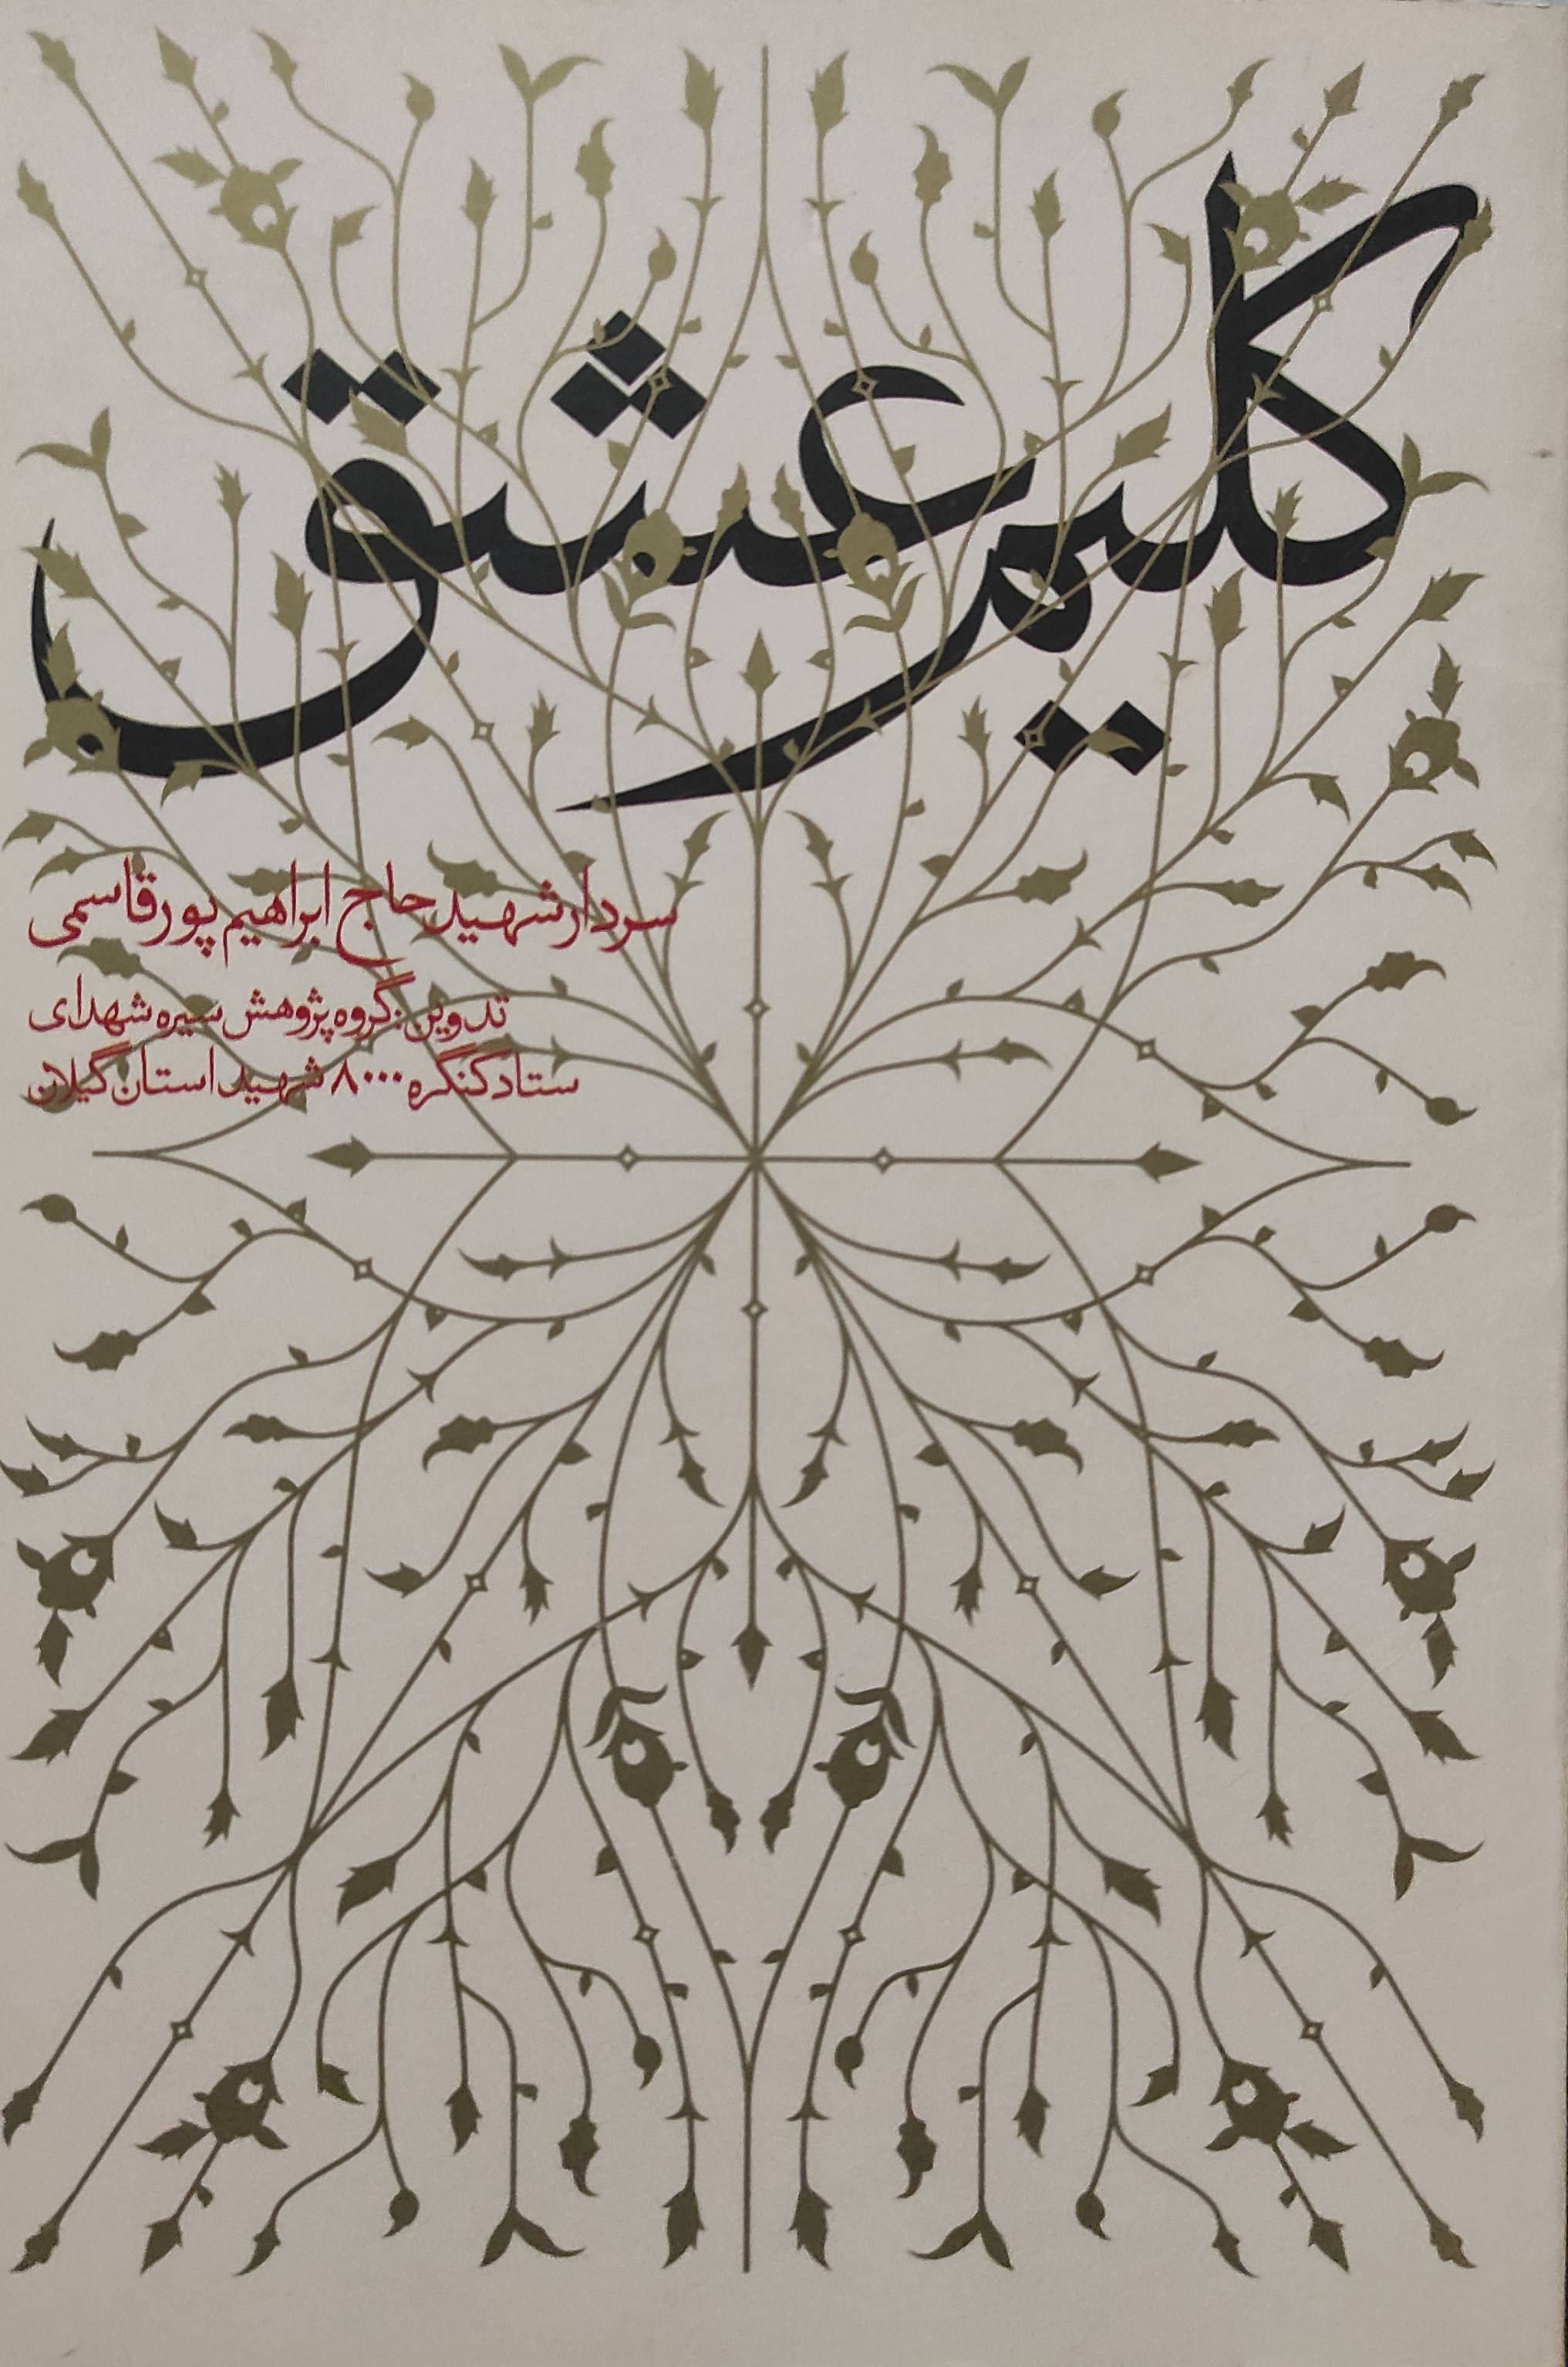 کلیم عشق
سردار شهید حاج ابراهیم پورقاسمی
تدوین: گروه پژوهش سیره شهدای
ستاد کنگره ۸۰۰۰ شهید استان گیلان